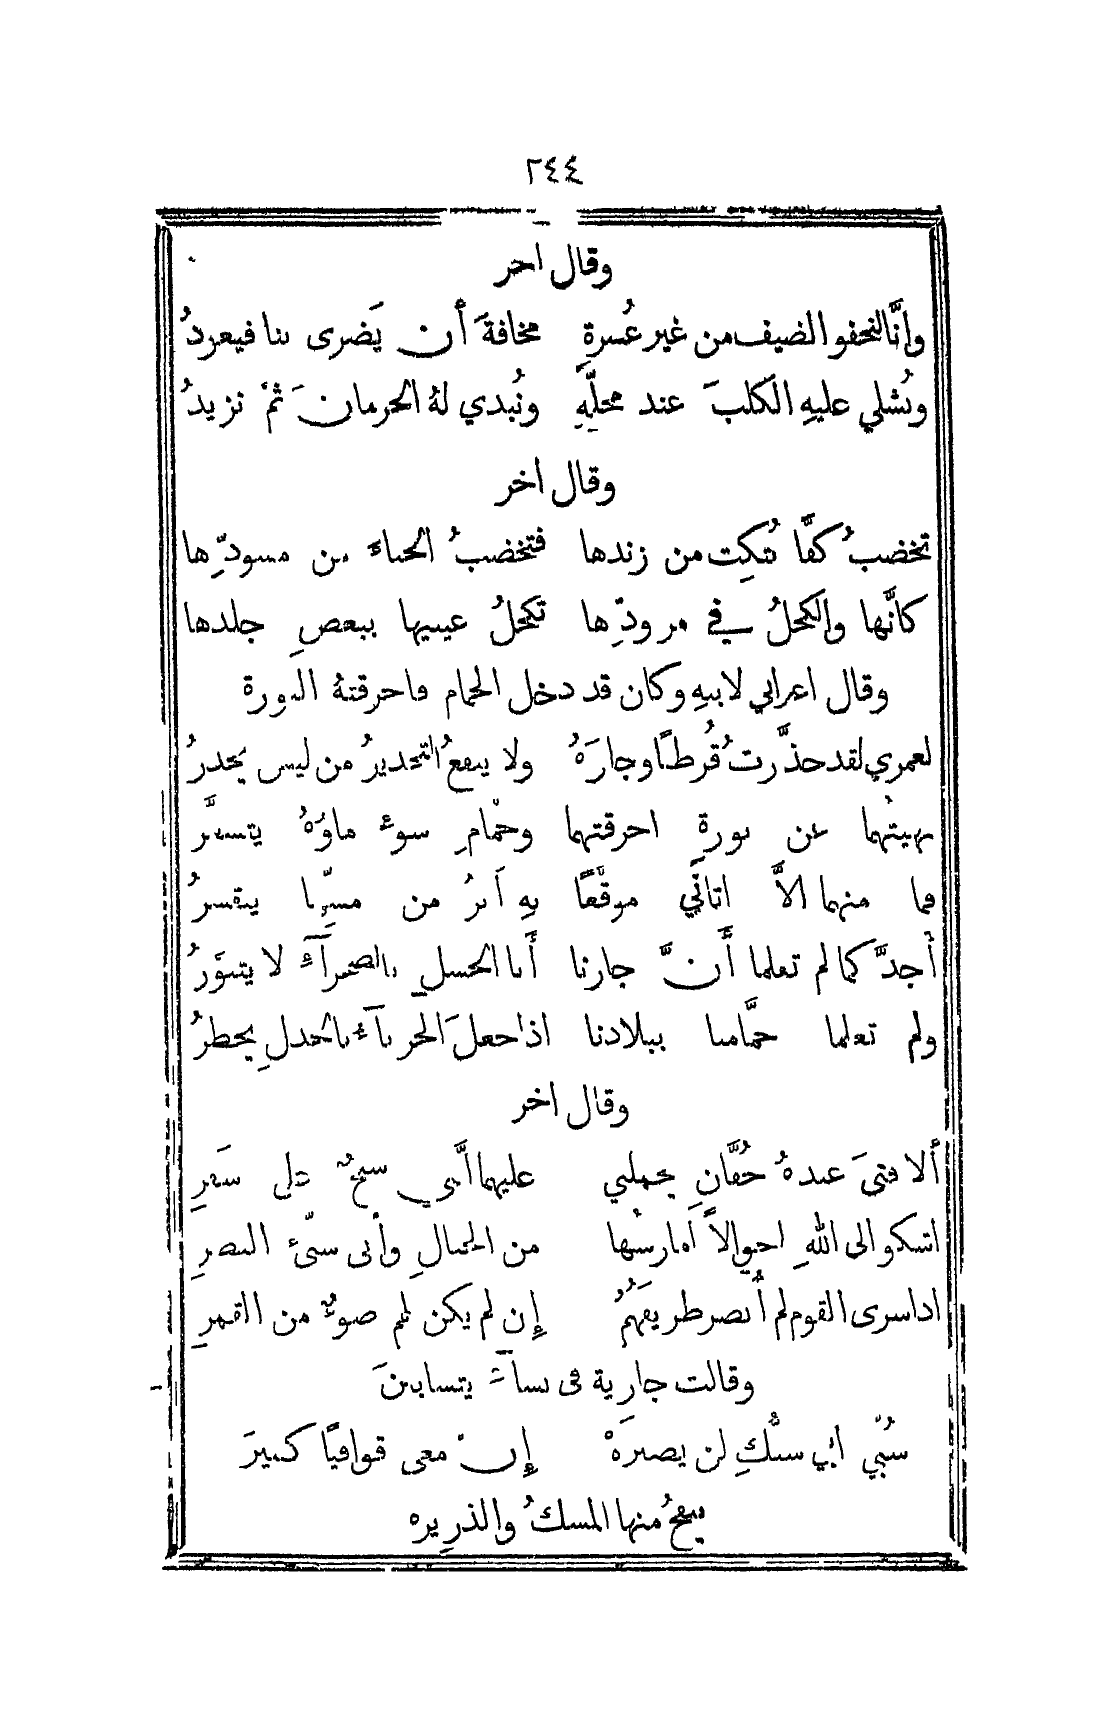 ٢٤٤
وقال اخر
وإنَّا لنجفو الضيف من غير عُسرةِ مخافةَ أن يَضرى بنا فيعودُ
ونُشلي عليهِ الكلبَ عند محلّهِ ونُبدي لهُ الحرمانَ ثمّ نزيدُ
وقال اخر
تخضبُ كفًّا بُتِكت من زندها فتخضبُ الحناءَ من مسودّها
كأنَّها والكحلُ في مرودِّها تكحلُ عينيها ببعضِ جلدها
وقال اعرابي لابيهِ وكان قد دخل الحمام فاحرقتهُ النورة
لعمري لقد حذَّرتُ قُرطًا وجارَهُ ولا ينفعُ التحذيرُ من ليس يحذرُ
نهيتهما عن نورةٍ احرقتهما وحمّامِ سوءٍ ماؤهُ يتسعَّر
فما منهما الاَّ اتاني موقَّعًا بهِ أثرٌ من مسّها يتقشرُ
أجدَّكما لم تعلما أنَّ جارنا أبا الحسلِ بالصحرآءِ لا يتنوَّرُ
ولم تعلما حمَّامنا ببلادنا اذا جعلَ الحربآءُ بالجذلِ يخطرُ
وقال اخر
ألا فتىَ عندهُ خُفَّانِ يحملني عليهما أنَّني شيخٌ على سفرِ
اشكو الى اللهِ احوالاً أمارسُها من الجبالِ وأني سيّئُ البصرِ
اذا سرى القوم لم أُبصر طريقهُمُ إن لم يكن لهم ضوءٌ من القمرِ
وقالت جارية في نسآءٍ يتساببنَ
سُبّي أبي سبُّكِ لن يضيرَهْ إنّ معي قوافيًا كثيرَ
ينفحُ منها المسكُ والذريره